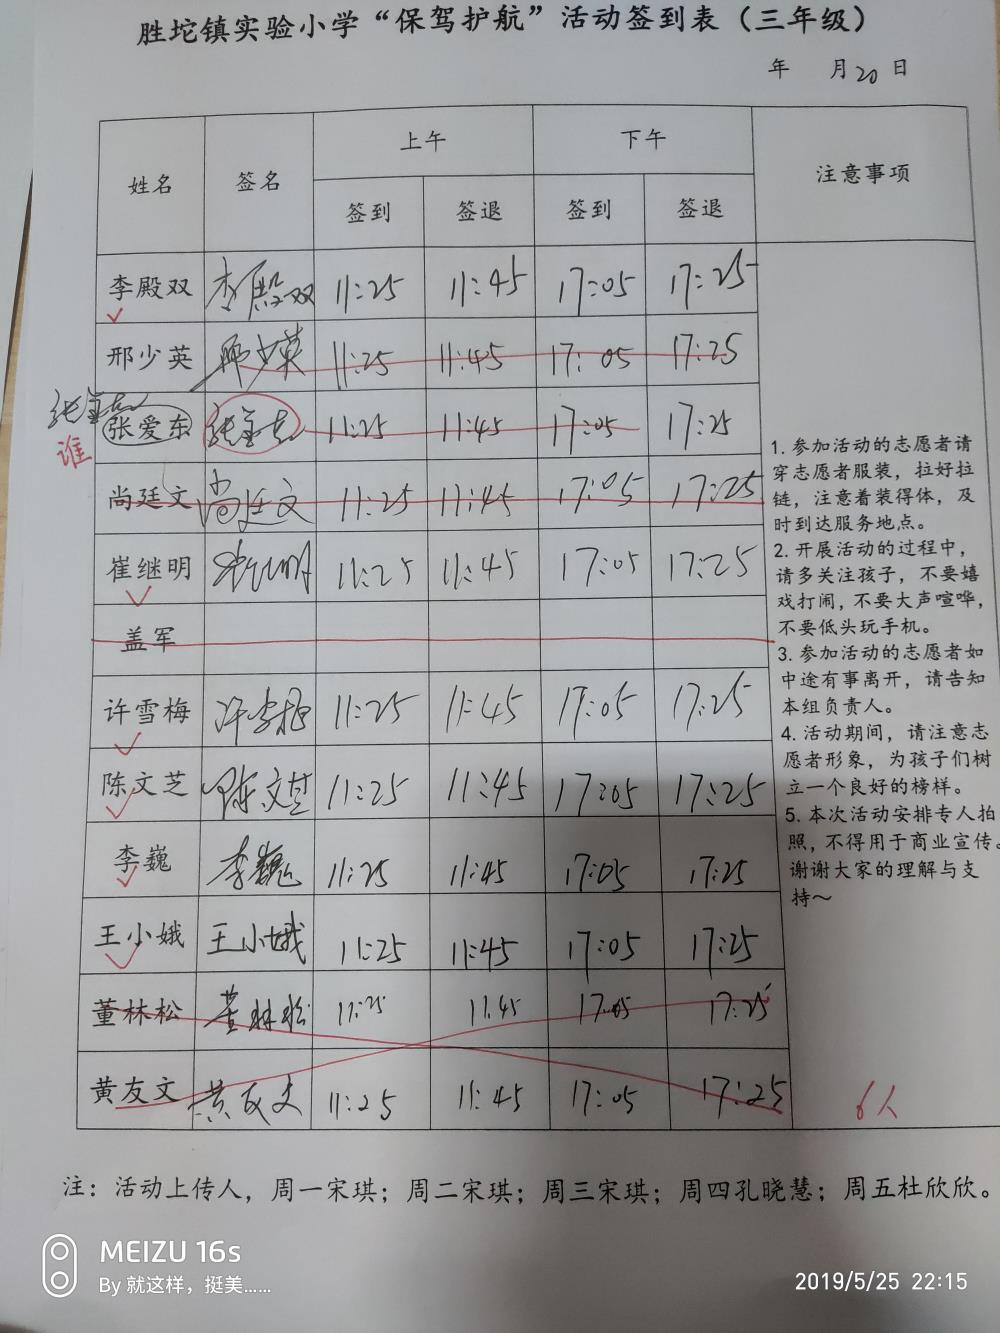 胜坨镇实验小学“保驾护航”活动签到表（三年级）
年 月20日
姓名 签名 上午 下午 注意事项
签到 签退 签到 签退
李殿双 李殿双 11:25 11:45 17:05 17:25
邢少英 邢少英 11:25 11:45 17:05 17:25
张爱东 11:25 11:45 17:05 17:25
谁
尚廷文 尚廷文 11:25 11:45 17:05 17:25
崔继明 11:25 11:45 17:05 17:25
盖军
许雪梅 许雪梅 11:25 11:45 17:05 17:25
陈文芝 陈文芝 11:25 11:45 17:05 17:25
李巍 李巍 11:25 11:45 17:05 17:25
王小娥 王小娥 11:25 11:45 17:05 17:25
董林松 董林松 11:25 11:45 17:05 17:25
黄友文 黄友文 11:25 11:45 17:05 17:25
1. 参加活动的志愿者请
穿志愿者服装，拉好拉
链，注意着装得体，及
时到达服务地点。
2. 开展活动的过程中，
请多关注孩子，不要嬉
戏打闹，不要大声喧哗，
不要低头玩手机。
3. 参加活动的志愿者如
中途有事离开，请告知
本组负责人。
4. 活动期间，请注意志
愿者形象，为孩子们树
立一个良好的榜样。
5. 本次活动安排专人拍
照，不得用于商业宣传。
谢谢大家的理解与支
持～
6人
注：活动上传人，周一宋琪；周二宋琪；周三宋琪；周四孔晓慧；周五杜欣欣。
MEIZU 16s
By 就这样，挺美……
2019/5/25 22:15